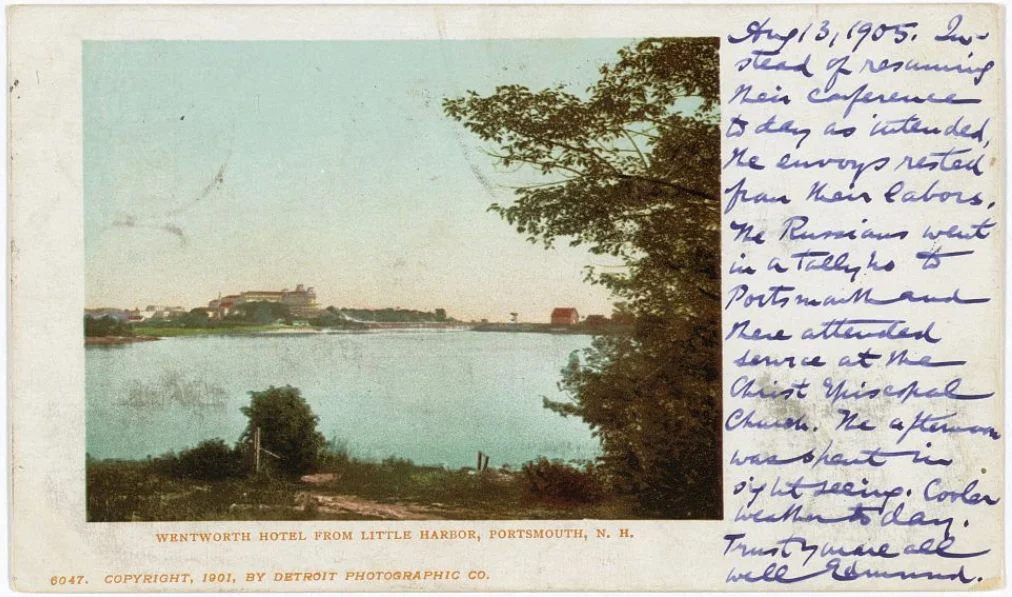 Aug 13, 1905. In-
stead of resuming
their conference
today as intended,
the envoys rested
from their labors.
The Russians went
in a tally ho to
Portsmouth and
there attended
service at the
Christ Episcopal
Church. The afternoon
was spent in
sight seeing. Cooler
weather today.
Trust you are all
well Edmund.
WENTWORTH HOTEL FROM LITTLE HARBOR, PORTSMOUTH, N. H.
6047. COPYRIGHT, 1901, BY DETROIT PHOTOGRAPHIC CO.